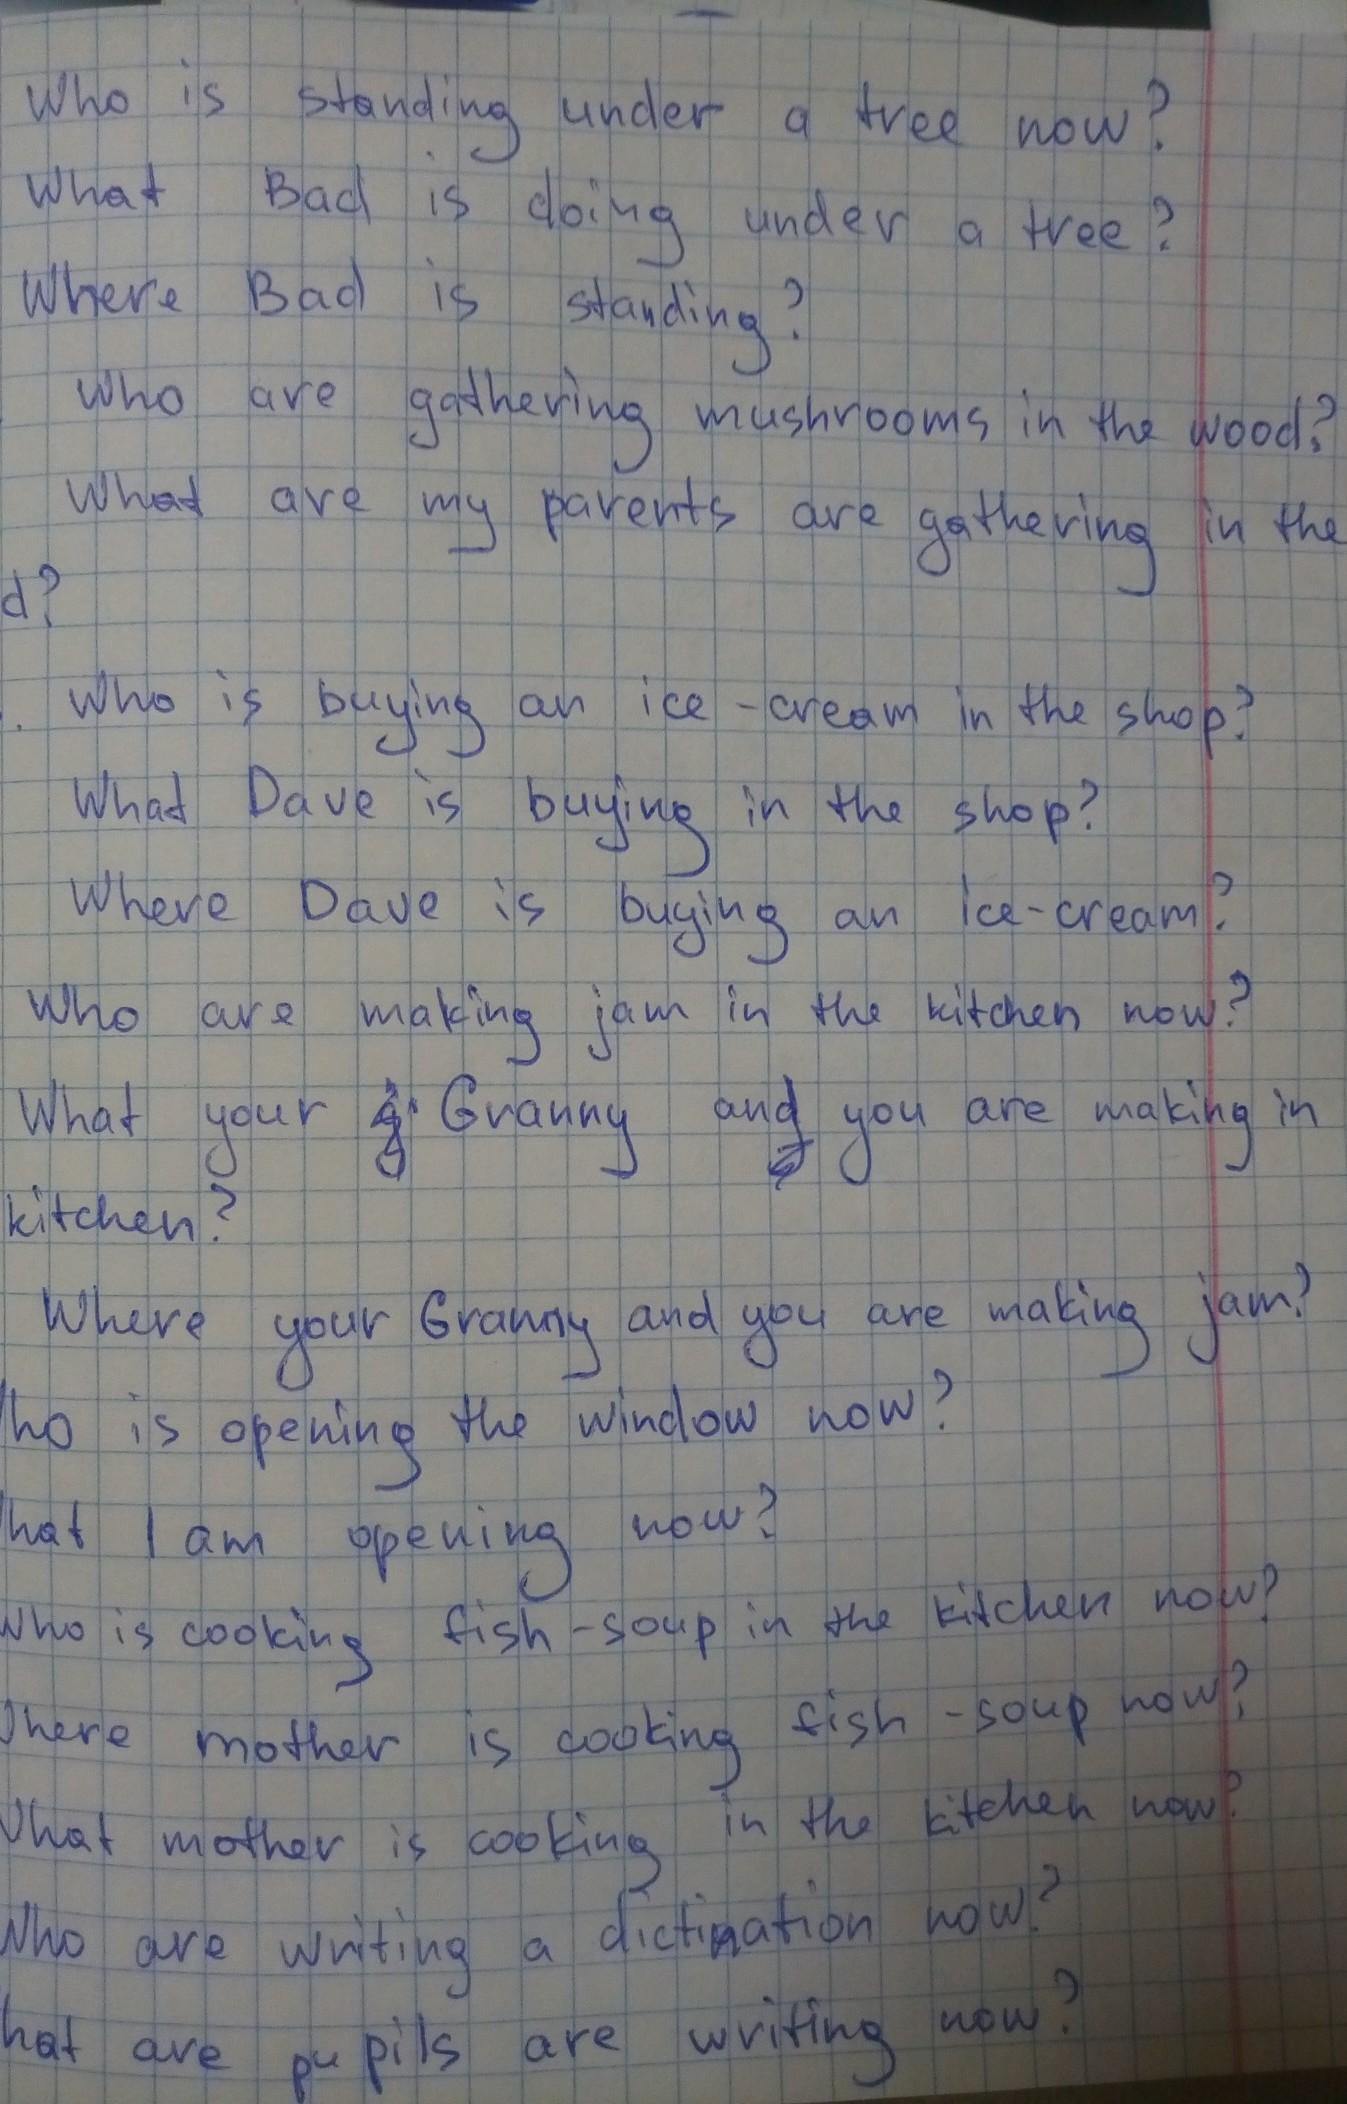 Who is standing under a tree now?
What Bad is doing under a tree?
Where Bad is standing?
Who are gathering mushrooms in the wood?
What are my parents are gathering in the
d?
. Who is buying an ice-cream in the shop?
What Dave is buying in the shop?
Where Dave is buying an ice-cream?
Who are making jam in the kitchen now?
What your Granny and you are making in
kitchen?
Where your Granny and you are making jam?
ho is opening the window now?
hat I am opening now?
Who is cooking fish-soup in the kitchen now?
here mother is cooking fish-soup now?
What mother is cooking in the kitchen now?
Who are writing a now?
hat are pupils are writing now?